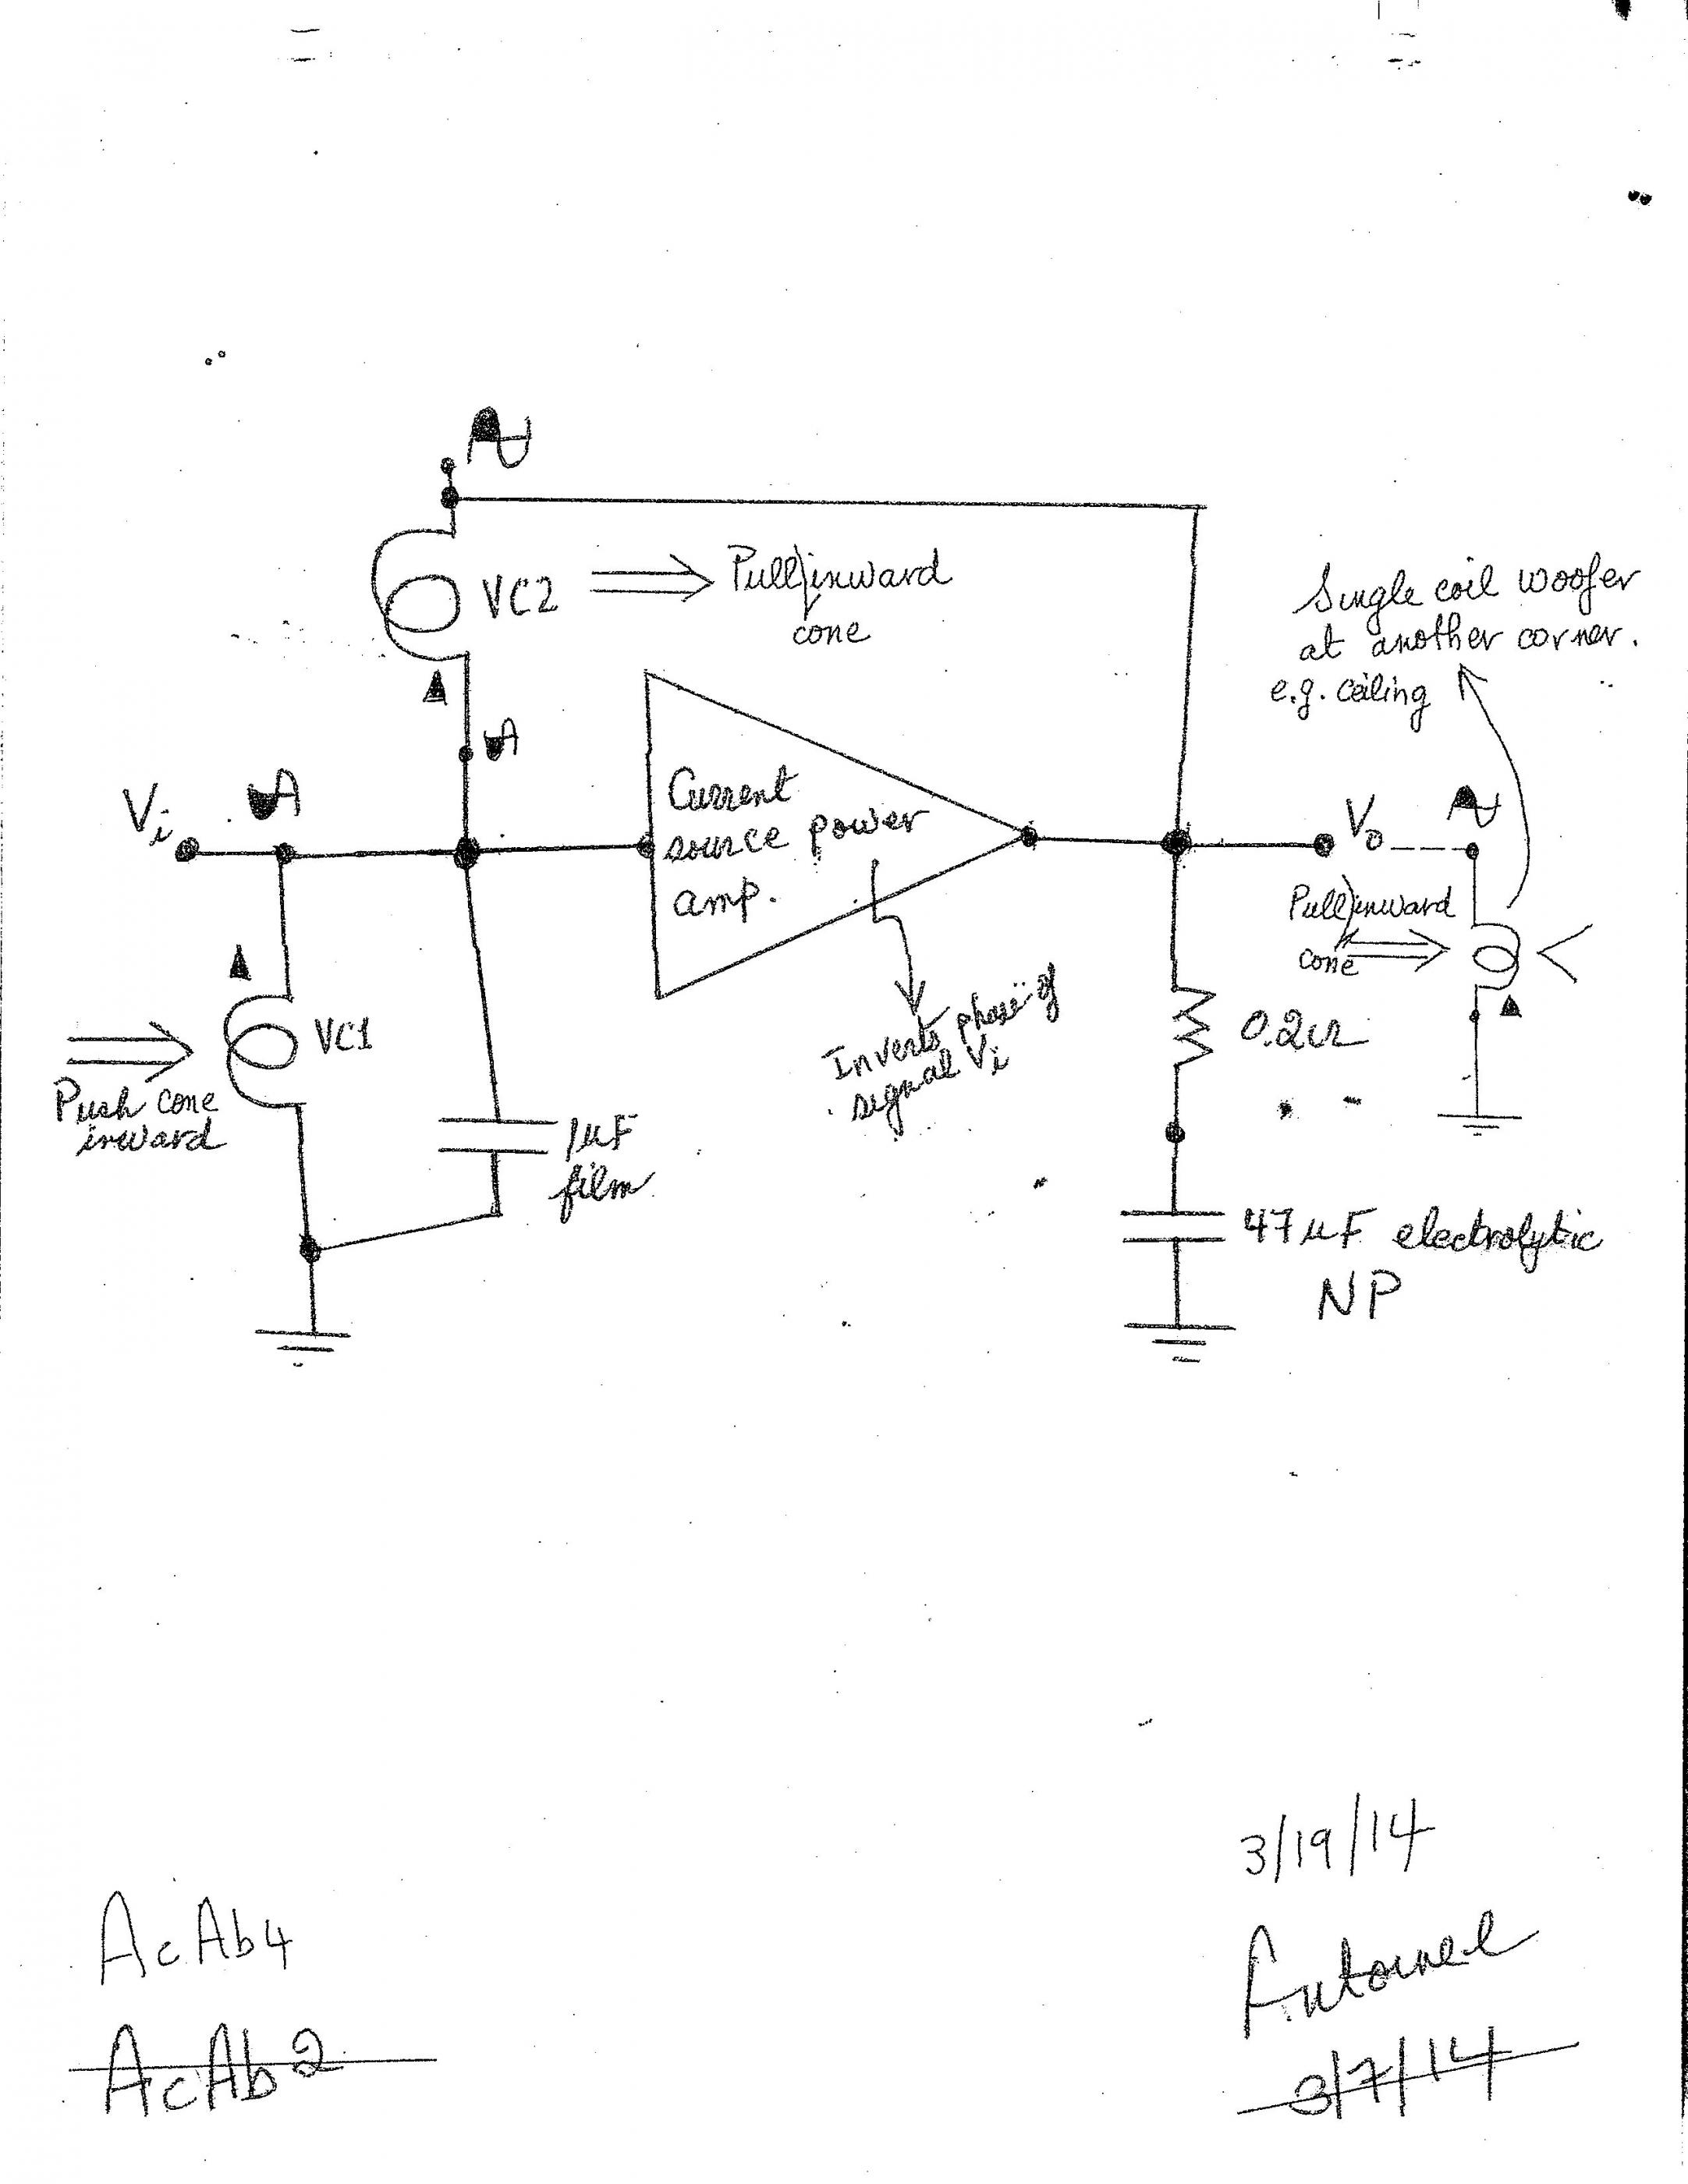 VC2
Pull/inward
cone
Single coil woofer
at another corner.
e.g. ceiling
Vi
Current
source power
amp.
Vo
Pull/inward
cone
VC1
Push cone
inward
Inverts phase of
signal Vi
0.2Ω
1µF
film
47µF electrolytic
NP
3/19/14
AcAb4
AcAb2
3/7/14